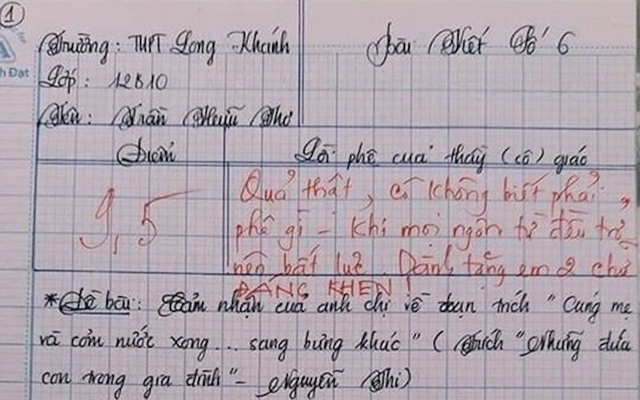 1
h Đạt
Trường: THPT Long Khánh
Bài Viết Số 6
Lớp: 12B10
Tên: Trần Hữu Thơ
Điểm
Lời phê của thầy (cô) giáo
9,5
Quả thật, cô không biết phải
phê gì - khi mọi ngôn từ đều trở
nên bất lực. Dành tặng em 2 chữ
ĐÁNG KHEN!
*Đề bài: Cảm nhận của anh chị về đoạn trích "Cúng mẹ
và cơm nước xong... sang bưng khác" (Trích "Những đứa
con trong gia đình" - Nguyễn Thi)